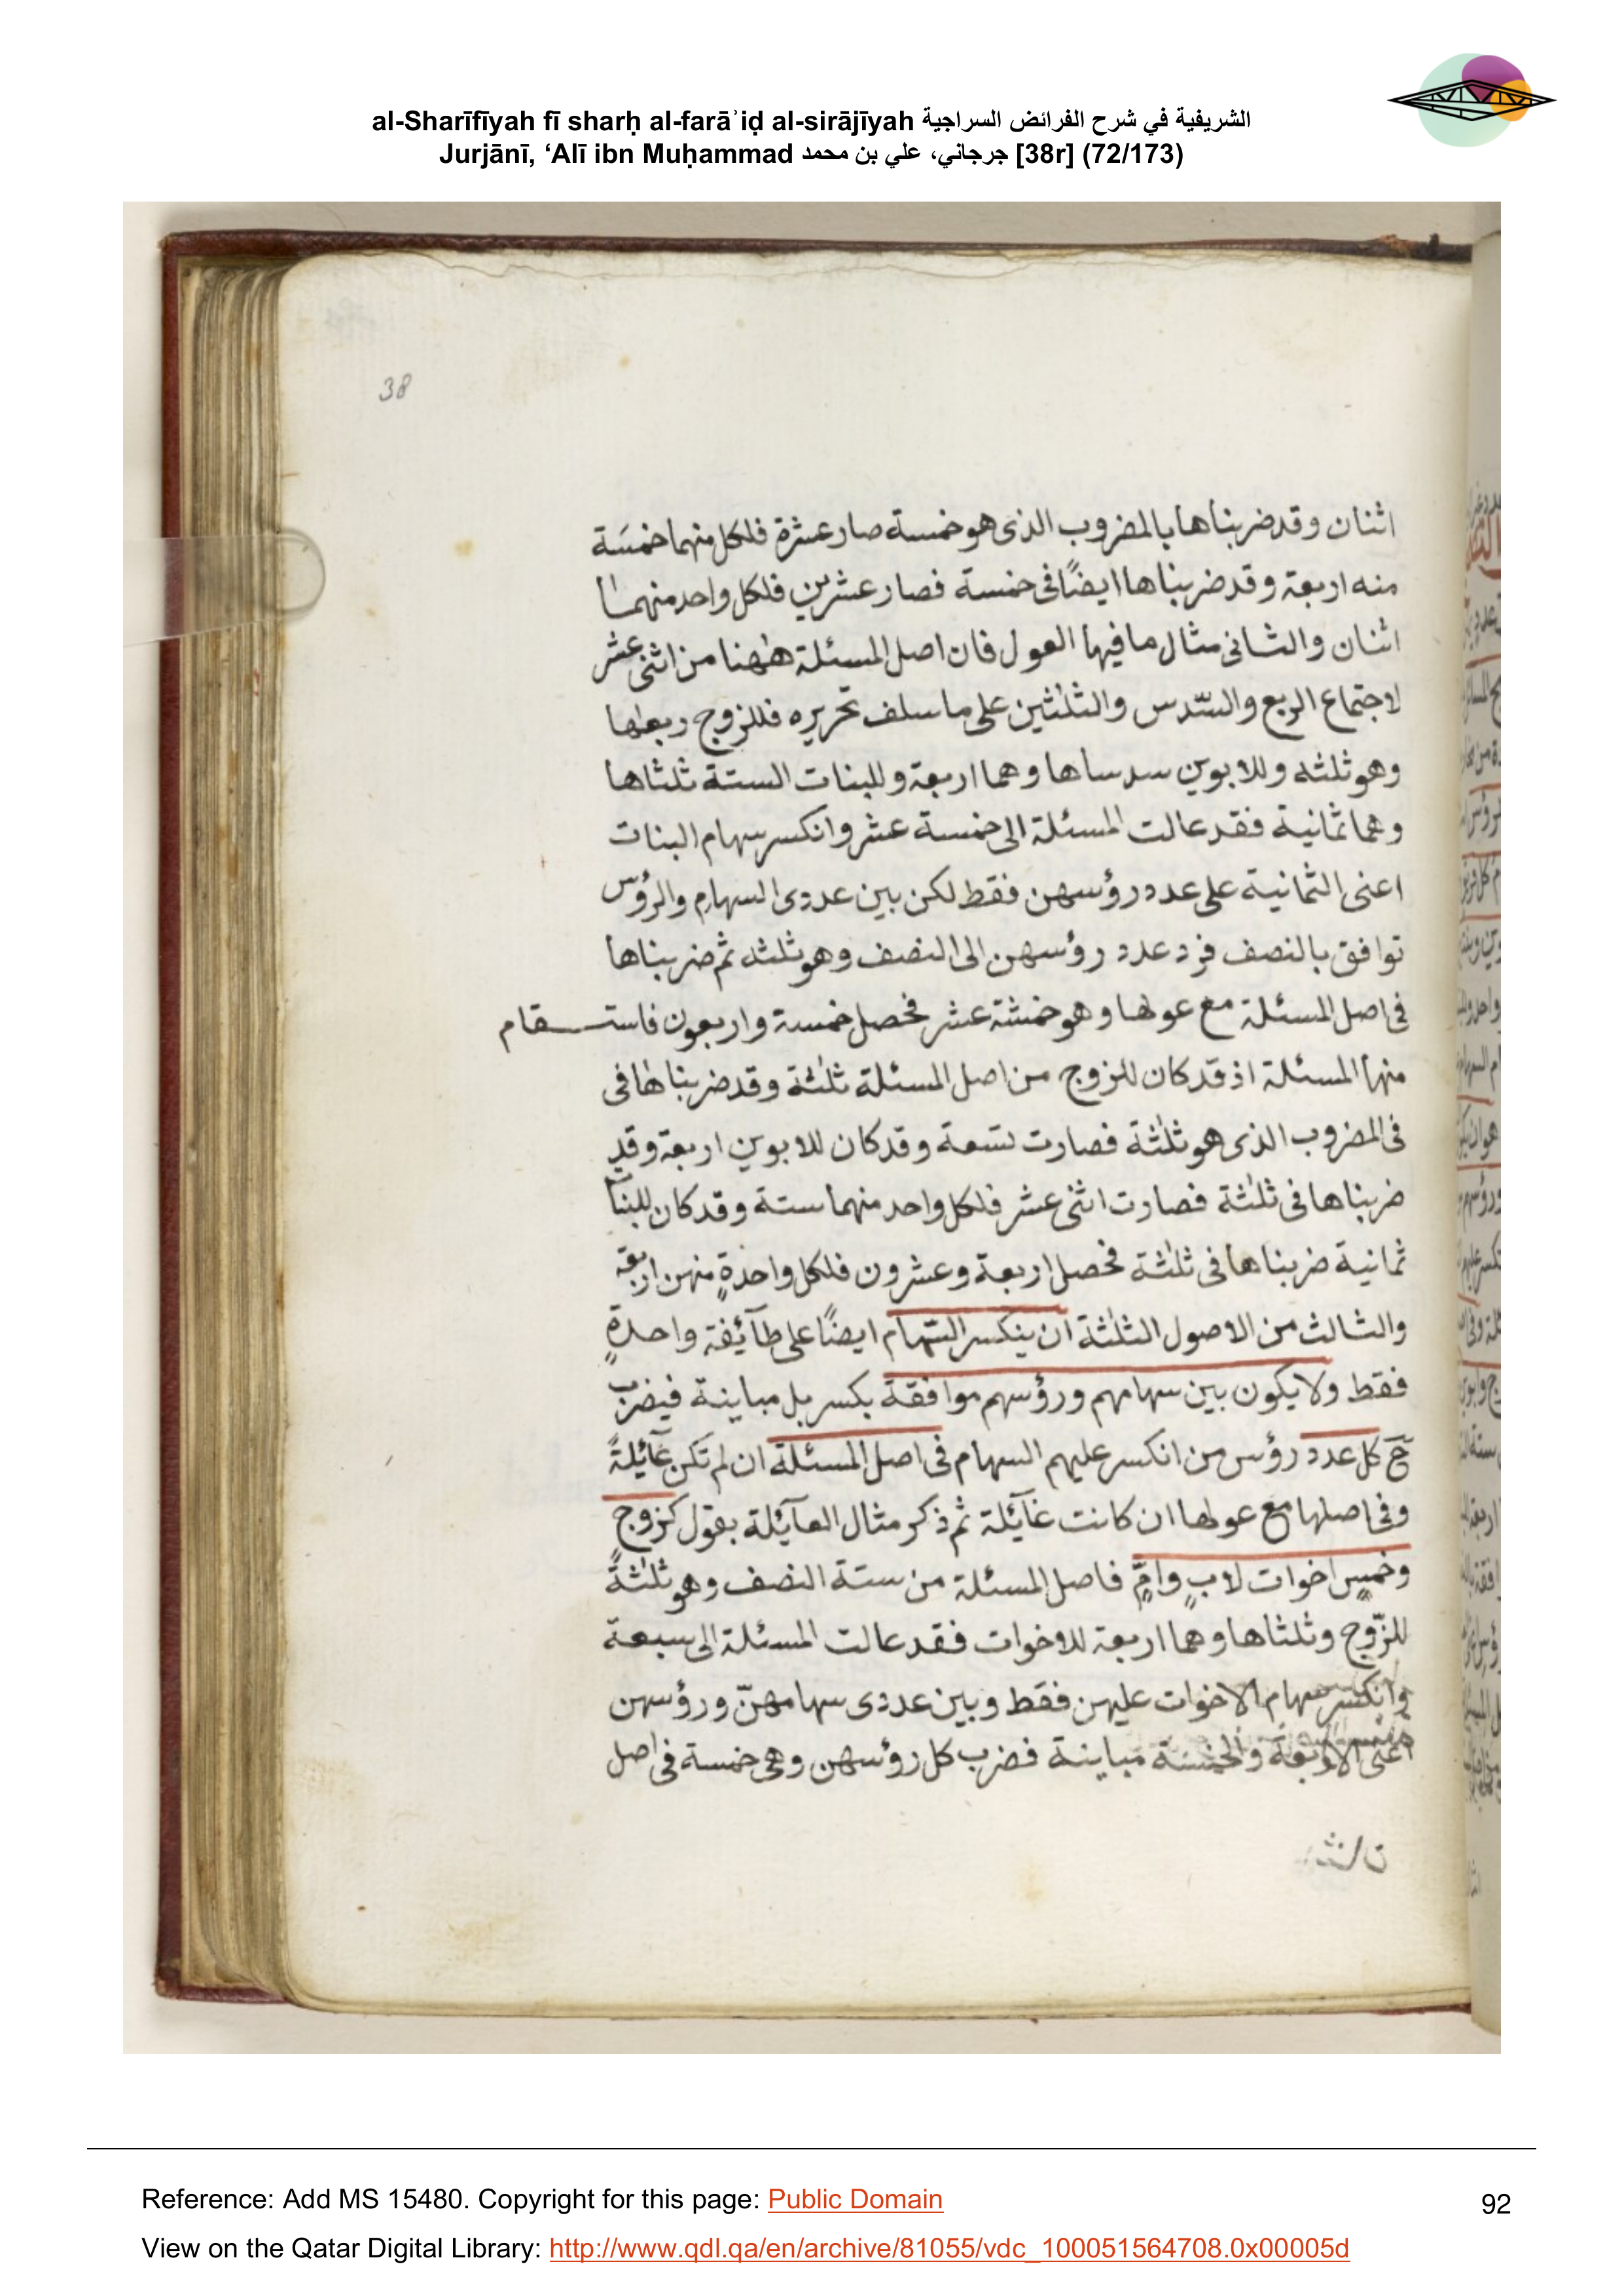 al-Sharīfīyah fī sharḥ al-farāʾiḍ al-sirājīyah الشريفية في شرح الفرائض السراجية
Jurjānī, ‘Alī ibn Muḥammad جرجاني، علي بن محمد [38r] (72/173)
38
اثنان وقد ضربناها بالمضروب الذى هو خمسة صار عشرة فلكل منهما خمسَة
منه اربعة وقد ضربناها ايضًا فى خمسة فصار عشرين فلكل واحد منهما
اثنان والثانى مثال ما فيها العول فان اصل المسئلة هٰهنا من اثنى عشر
لاجتماع الربع والسّدس والثلثين على ما سلف تحريره فللزوج ربعها
وهو ثلثه وللابوين سدساها وهما اربعة وللبنات الستة ثلثاها
وهما ثمانية فقد عالت المسئلة الى خمسة عشر وانكسر سهام البنات
اعنى الثمانية على عدد رؤسهن فقط لكن بين عددى السهام والرؤس
توافق بالنصف فرد عدد رؤسهن الى النصف وهو ثلثه ثم ضربناها
فى اصل المسئلة مع عولها وهو خمسة عشر فحصل خمسة واربعون فاستقام
منها المسئلة اذ قد كان للزوج من اصل المسئلة ثلٰثة وقد ضربناها فى
فى المضروب الذى هو ثلٰثة فصارت تسعة وقد كان للابوين اربعة وقد
ضربناها فى ثلٰثة فصارت اثنى عشر فلكل واحد منهما ستة وقد كان للبنآ
ثمانية ضربناها فى ثلٰثة فحصل اربعة وعشرون فلكل واحدةٍ منهن اربعة
والثالث من الاصول الثلٰثة ان ينكسر السّهام ايضًا على طآئفة واحدةٍ
فقط ولا يكون بين سهامهم ورؤسهم موافقة بكسر بل مباينة فيضرب
حٓ كل عدد رؤس من انكسر عليهم السهام فى اصل المسئلة ان لم تكن عآئلةً
وفى اصلها مع عولها ان كانت عآئلة ثم ذكر مثال العآئلة بقول كزوجٍ
وخمسِ اخوات لابٍ وامٍّ فاصل المسئلة من ستة النصف وهو ثلٰثةً
للزّوج وثلثاها وهما اربعة للاخوات فقد عالت المسئلة الى سبعة
وانكسر سهام الاخوات عليهن فقط وبين عددى سهامهنّ ورؤسهن
اعنى الاربعة والخمسة مباينة فضرب كل رؤسهن وهى خمسة فى اصل
Reference: Add MS 15480. Copyright for this page: Public Domain
92
View on the Qatar Digital Library: http://www.qdl.qa/en/archive/81055/vdc_100051564708.0x00005d